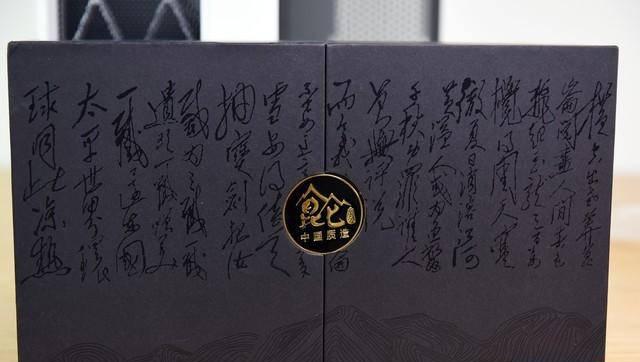 横空出世莽
崙阅尽人间春色
飞起玉龙三百万
搅得周天寒
彻夏日消溶江河
横溢人或为鱼鳖
千秋功罪谁人
曾与评说
而今我
雪安得倚天
抽宝剑把汝
裁为三截一截
遗欧一截赠美
一截还东国
太平世界环
球同此凉热
昆仑
中国质造